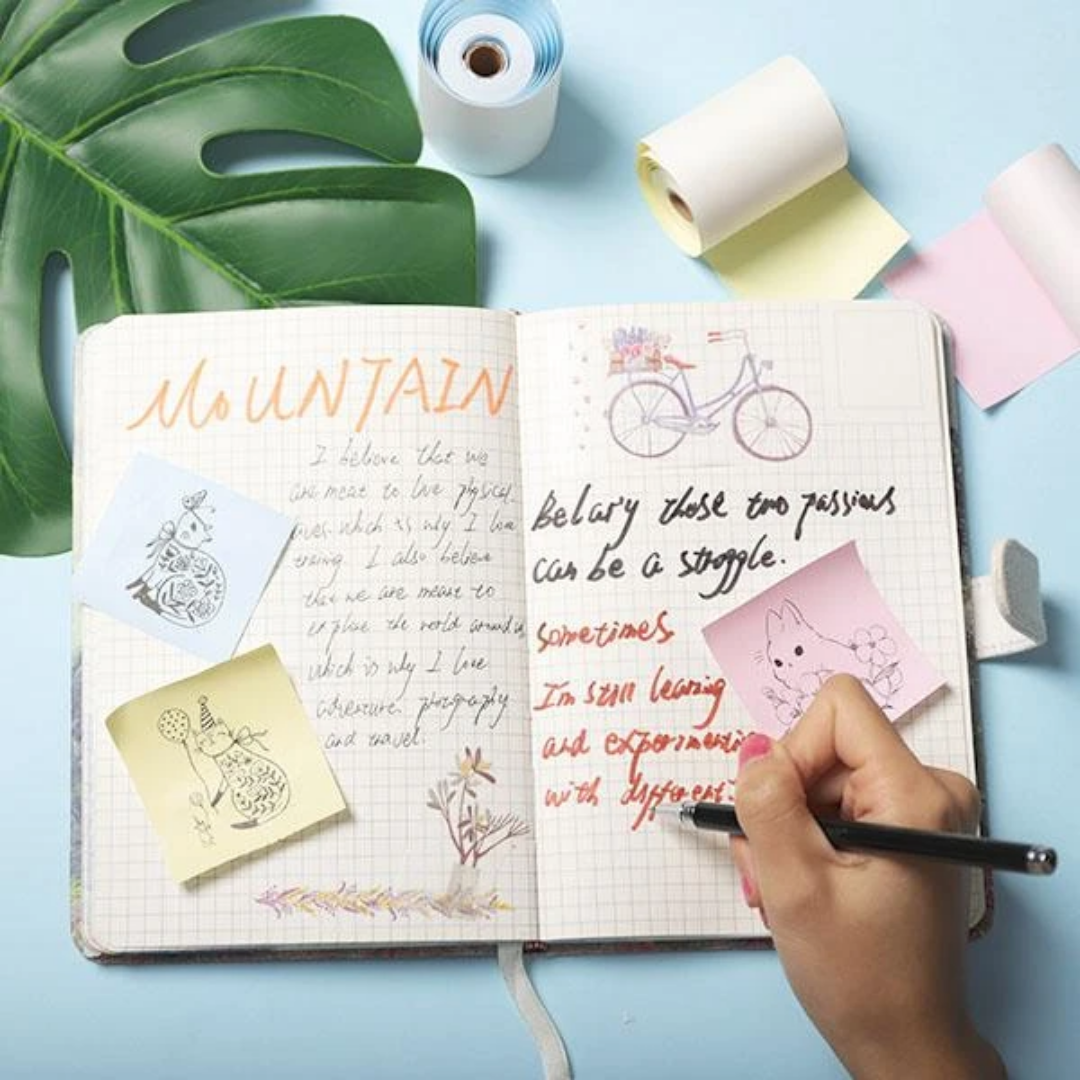 MOUNTAIN
I believe that we
are meat to live physical
lives which is why I love
traing. I also believe
that we are meant to
explore the world around us
which is why I love
adventure. photography
and travel.
Belary those two passions
can be a struggle.
sometimes
I'm still learing
and experimentin
with different